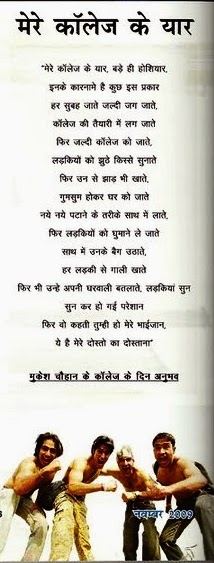 मेरे कॉलेज के यार
"मेरे कॉलेज के यार, बड़े ही होशियार,
इनके कारनामे है कुछ इस प्रकार
हर सुबह जाते जल्दी जग जाते,
कॉलेज की तैयारी में लग जाते
फिर जल्दी कॉलेज को जाते,
लड़कियों को झुठे किस्से सुनाते
फिर उन से झाड़ भी खाते,
गुमसुम होकर घर को जाते
नये नये पटाने के तरीके साथ में लाते,
फिर लड़कियों को घुमाने ले जाते
साथ में उनके बैग उठाते,
हर लड़की से गाली खाते
फिर भी उन्हे अपनी घरवाली बतलाते, लड़कियां सुन
सुन कर हो गई परेशान
फिर वो कहती तुम्ही हो मेरे भाईजान,
ये है मेरे दोस्तो का दोस्ताना"
मुकेश चौहान के कॉलेज के दिन अनुभव
नवम्बर 2009